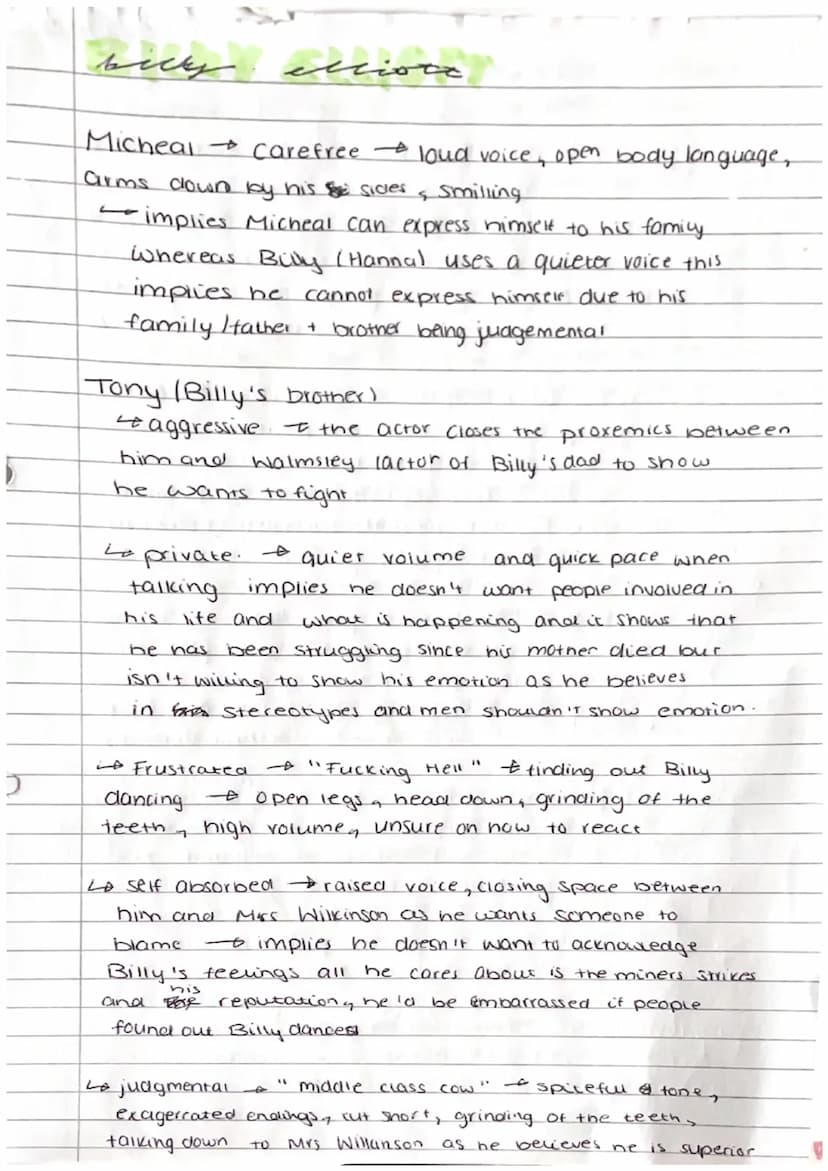 BILLY ELLIOTT
billy elliott
Micheal → carefree → loud voice, open body language,
arms down by his sides, smilling
↳ implies Micheal can express himself to his family
whereas Billy (Hanna) uses a quieter voice this
implies he cannot express himself due to his
family/father + brother being judgemental
Tony (Billy's brother)
↳ aggressive → the actor closes the proxemics between
him and Walmsley (actor of Billy's dad to show
he wants to fight
↳ private. → quiet volume and quick pace when
talking implies he doesn't want people involved in
his life and what is happening and it shows that
he has been struggling since his mother died but
isn't willing to show his emotion as he believes
in stereotypes and men shouldn't show emotion.
↳ Frustrated → "Fucking Hell" → finding out Billy
dancing → open legs, head down, grinding of the
teeth, high volume, unsure on how to react
↳ self absorbed → raised voice, closing space between
him and Mrs Wilkinson as he wants someone to
blame → implies he doesn't want to acknowledge
Billy's feelings all he cares about is the miners strikes
and his reputation, he'd be embarrassed if people
found out Billy dances
↳ judgmental → "middle class cow" → spiteful tone,
exagerrated endings, cut short, grinding of the teeth,
talking down to Mrs Wilkinson as he believes he is superior